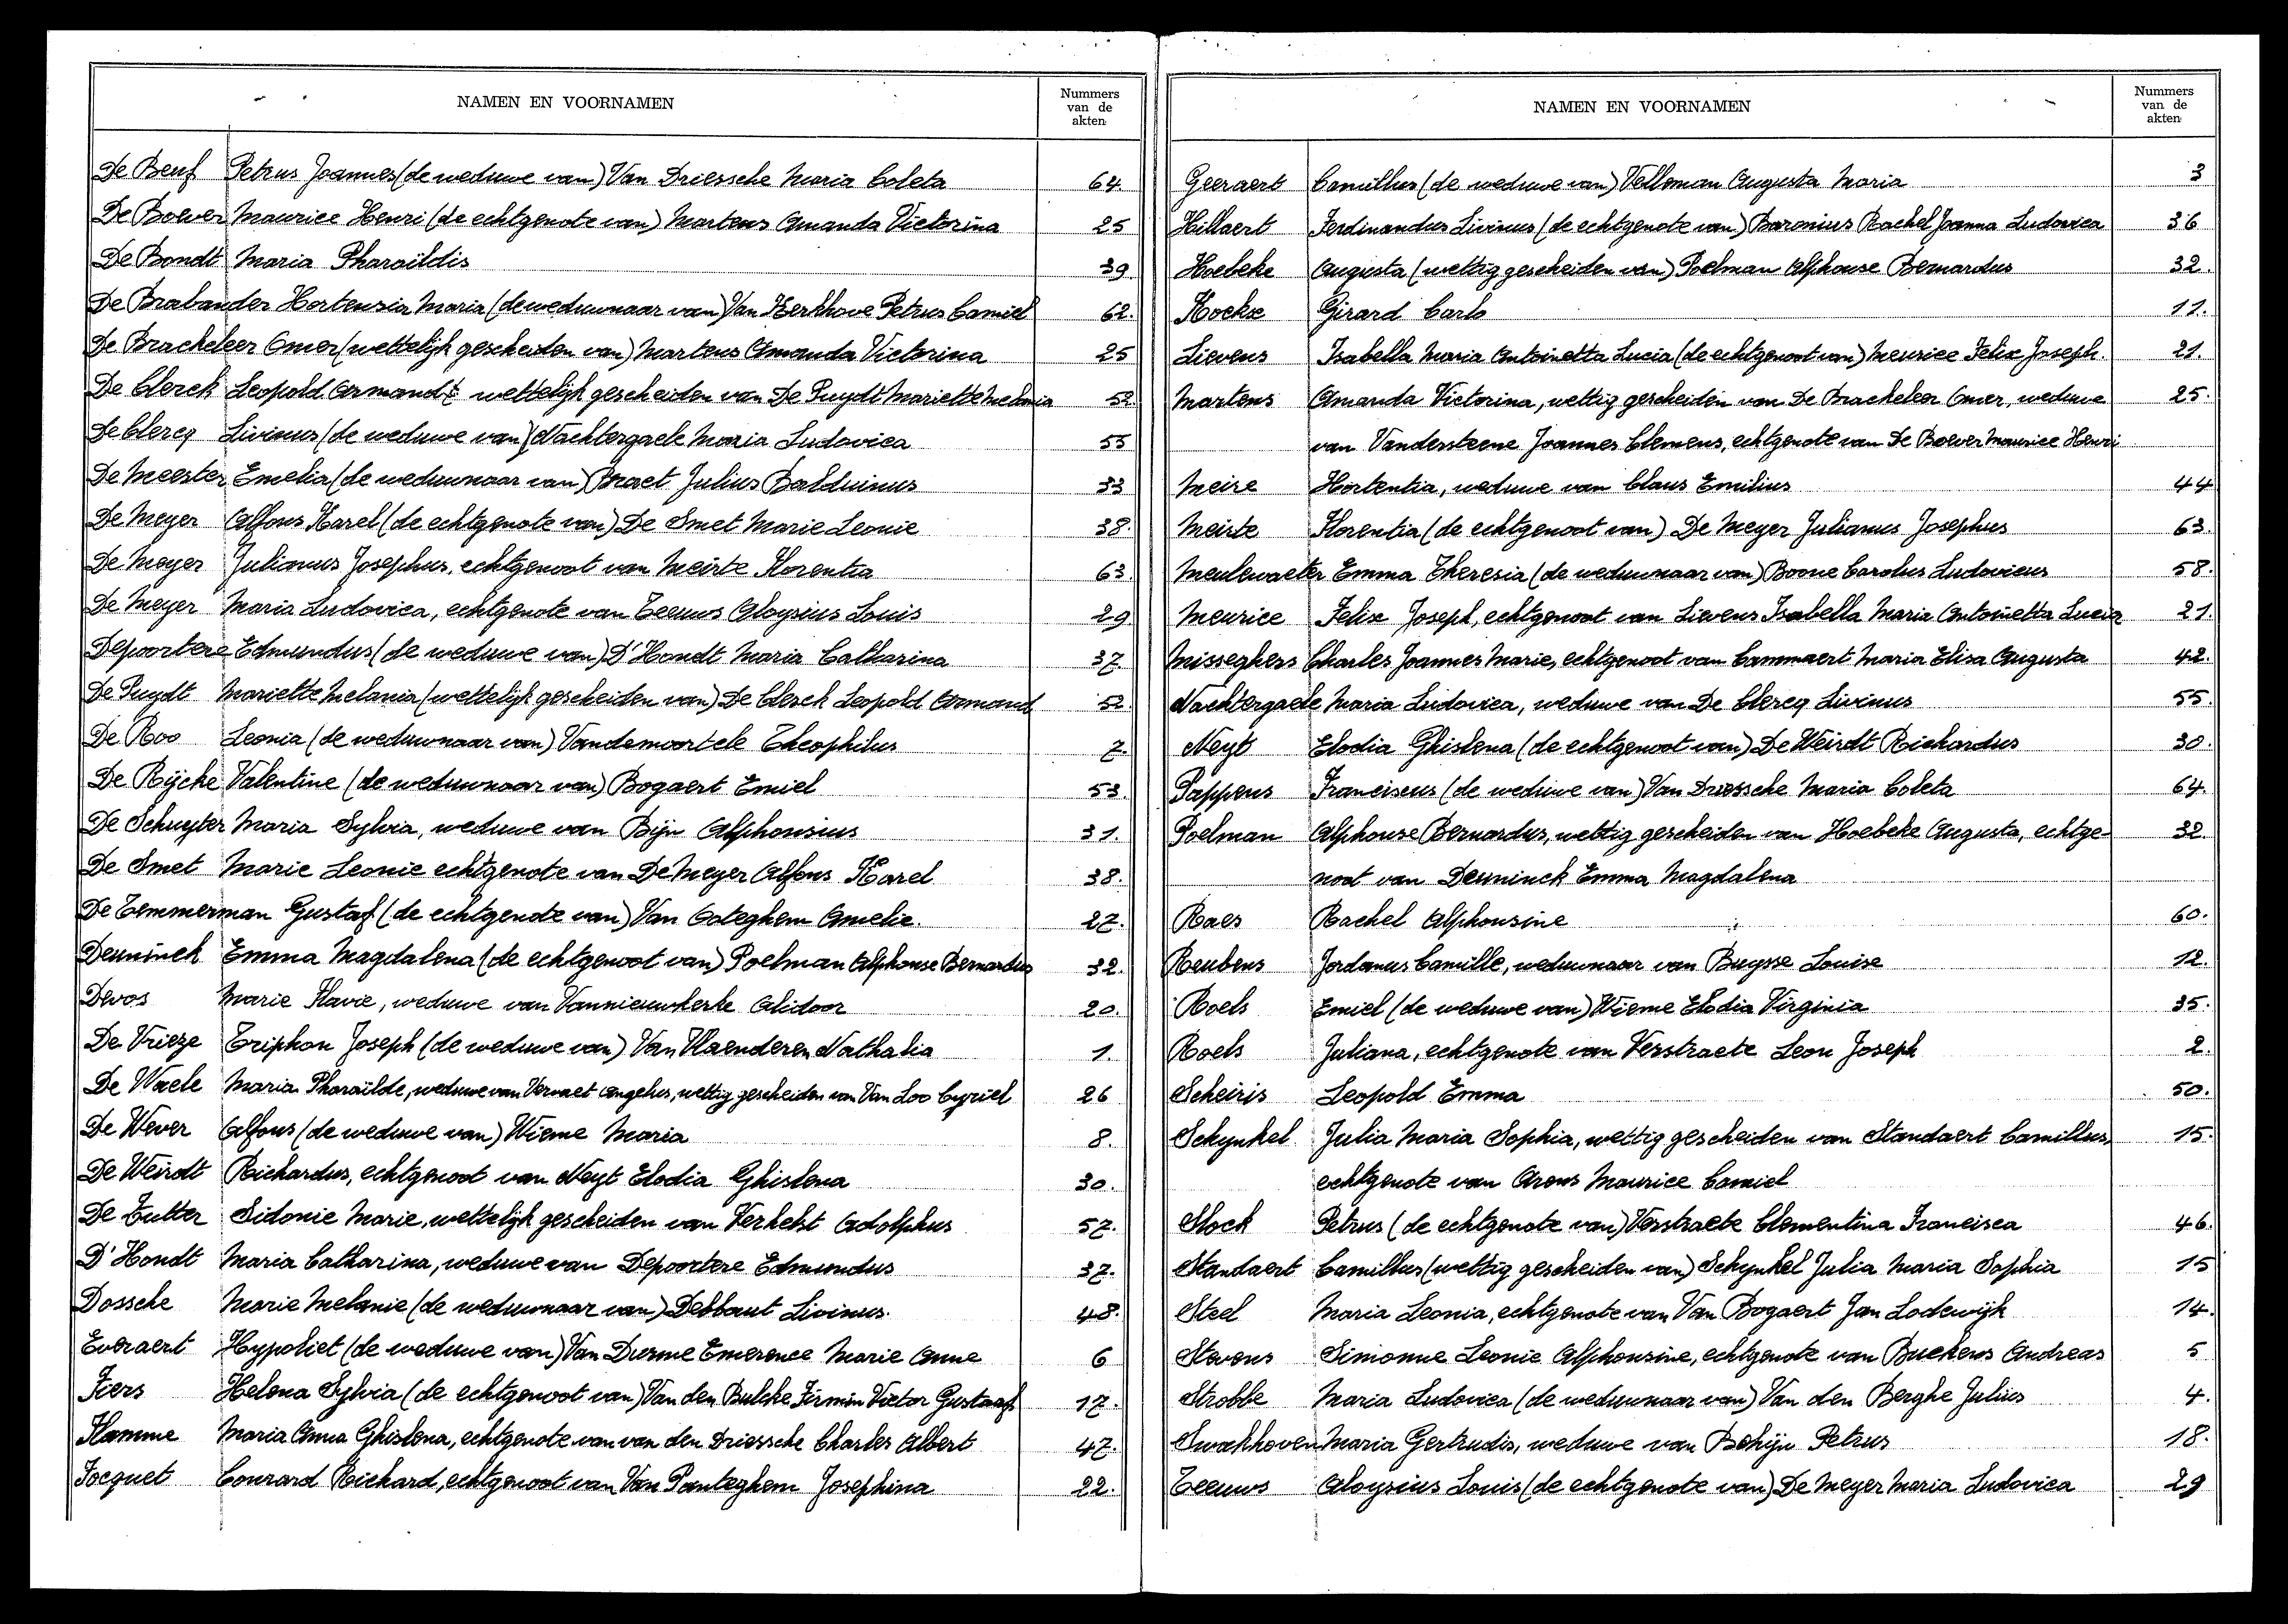 NAMEN EN VOORNAMEN
Nummers
van de
akten
De Beuf Petrus Joannes (de weduwe van) Van Driessche Maria Coleta 64.
De Boever Maurice Henri (de echtgenote van) Martens Amanda Victorina 25
De Bondt Maria Pharaïldis 39
De Brabander Hortensia Maria (de weduwnaar van) Van Kerkhove Petrus Camiel 62.
De Brackeleer Omer (wettelijk gescheiden van) Martens Amanda Victorina 25
De Clerck Leopold Armand wettelijk gescheiden van De Puydt Mariette Melania 52
De Clercq Livinus (de weduwe van) Nachtergaele Maria Ludovica 55
De Meester Emelia (de weduwnaar van) Braet Julius Balduinus 33
De Meyer Alfons Karel (de echtgenote van) De Smet Marie Leonie 38.
De Meyer Julianus Josephus, echtgenoot van Meirte Florentia 63.
De Meyer Maria Ludovica, echtgenote van Teeuws Aloysius Louis 29
Depoortere Edmundus (de weduwe van) D'Hondt Maria Catharina 37.
De Puydt Mariette Melania (wettelijk gescheiden van) De Clerck Leopold Armand 52.
De Roo Leonia (de weduwnaar van) Vandemoortele Theophilus 7.
De Rijcke Valentine (de weduwnaar van) Bogaert Emiel 53.
De Schuyter Maria Sylvia, weduwe van Bijn Alphonsius 31.
De Smet Marie Leonie echtgenote van De Meyer Alfons Karel 38.
De Temmerman Gustaf (de echtgenote van) Van Ooteghem Amelie. 27.
Deuninck Emma Magdalena (de echtgenoot van) Poelman Alphonse Bernardus 32.
Devos Marie Flavie, weduwe van Vannieuwkerke Alidoor 20.
De Vrieze Triphon Joseph (de weduwe van) Van Vlaenderen Nathalia 1.
De Waele Maria Pharaïlde, weduwe van Vervaet Angelus, wettig gescheiden van Van Loo Cyriel 26
De Wever Alfons (de weduwe van) Wieme Maria 8.
De Weirdt Richardus, echtgenoot van Neyt Elodia Ghislena 30.
De Zutter Sidonie Marie, wettelijk gescheiden van Verhelst Adolphus 57.
D'Hondt Maria Catharina, weduwe van Depoortere Edmundus 37.
Dossche Marie Melanie (de weduwnaar van) Debbaut Livinus. 48.
Everaert Hypoliet (de weduwe van) Van Durme Emerence Marie Anne 6
Fiers Helena Sylvia (de echtgenoot van) Van den Bulcke Firmin Victor Gustaaf 17.
Flamme Maria Anna Ghislena, echtgenote van van den Driessche Charles Albert 47.
Focquet Conrard Richard, echtgenoot van Van Panteghem Josephina 22.
NAMEN EN VOORNAMEN
Nummers
van de
akten
Geeraert Camillus (de weduwe van) Velleman Augusta Maria 3
Hillaert Ferdinandus Livinus (de echtgenote van) Baronius Rachel Joanna Ludovica 36
Hoebeke Augusta (wettig gescheiden van) Poelman Alphonse Bernardus 32.
Hoekse Girard Carlo 11.
Lievens Isabella Maria Antoinetta Lucia (de echtgenoot van) Meurice Felix Joseph. 21.
Martens Amanda Victorina, wettig gescheiden van De Brackeleer Omer, weduwe 25.
van Vandersteene Joannes Clemens, echtgenote van De Boever Maurice Henri
Meire Hortentia, weduwe van Claus Emilius 44
Meirte Florentia (de echtgenoot van) De Meyer Julianus Josephus 63.
Meulewaeter Emma Theresia (de weduwnaar van) Boone Carolus Ludovicus 58.
Meurice Felix Joseph, echtgenoot van Lievens Isabella Maria Antoinetta Lucia 21.
Misseghers Charles Joannes Marie, echtgenoot van Cammaert Maria Elisa Augusta 42.
Nachtergaele Maria Ludovica, weduwe van De Clercq Livinus 55.
Neyt Elodia Ghislena (de echtgenoot van) De Weirdt Richardus 30.
Pappens Franciscus (de weduwe van) Van Driessche Maria Coleta 64.
Poelman Alphonse Bernardus, wettig gescheiden van Hoebeke Augusta, echtge- 32.
noot van Deuninck Emma Magdalena
Raes Rachel Alphonsine 60.
Reubens Jordanus Camille, weduwnaar van Buysse Louise 12.
Roels Emiel (de weduwe van) Wieme Elodia Virginia 35.
Roels Juliana, echtgenote van Verstraete Leon Joseph 2.
Scheiris Leopold Emma 50.
Schynkel Julia Maria Sophia, wettig gescheiden van Standaert Camillus, 15.
echtgenote van Arens Maurice Camiel
Slock Petrus (de echtgenote van) Verstraete Clementina Francisca 46.
Standaert Camillus (wettig gescheiden van) Schynkel Julia Maria Sophia 15
Steel Maria Leonia, echtgenote van Van Bogaert Jan Lodewijk 14.
Stevens Simonne Leonie Alphonsine, echtgenote van Buckens Andreas 5
Strobbe Maria Ludovica (de weduwnaar van) Van den Berghe Julius 4.
Swakhoven Maria Gertrudis, weduwe van Bohijn Petrus 18.
Teeuws Aloysius Louis (de echtgenote van) De Meyer Maria Ludovica 29